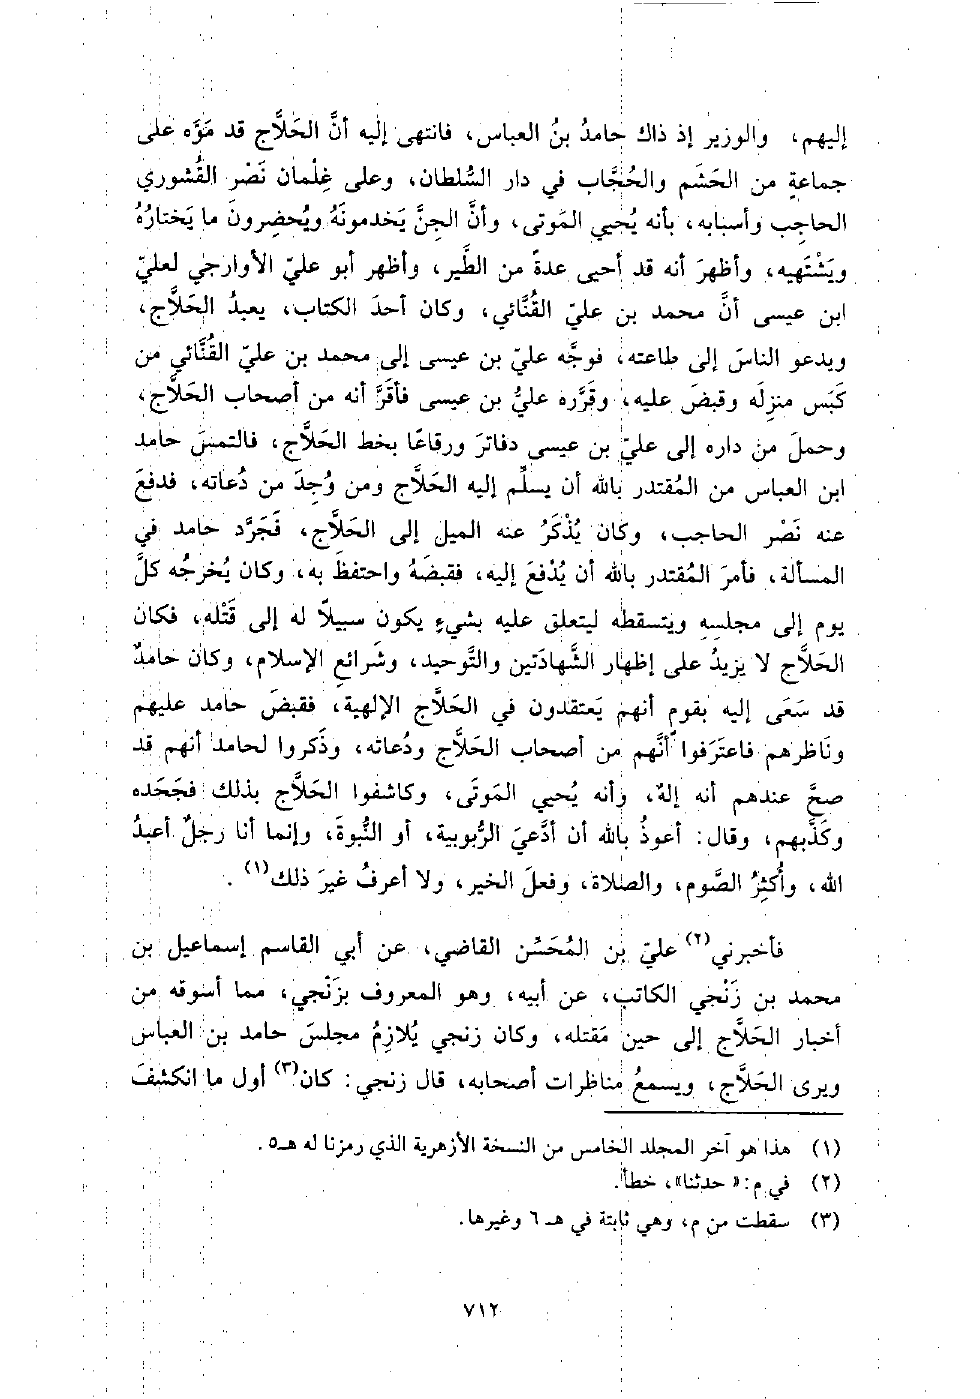 إليهم، والوزير إذ ذاك حامدُ بنُ العباس، فانتهى إليه أنَّ الحَلَّاج قد مَوَّه على
جماعةٍ من الحَشَم والحُجَّاب في دار السُّلطان، وعلى غِلْمان نَصْر القُشوري
الحاجِب وأسبابه، بأنه يُحيي المَوتى، وأنَّ الجنَّ يَخدمونَهُ ويُحضِرونَ ما يَختارُهُ
ويَشْتَهيه، وأظهرَ أنه قد أحيى عدةً من الطَّير، وأظهر أبو عليّ الأوارجي لعليّ
ابن عيسى أنَّ محمد بن عليّ القُنَّائي، وكان أحدَ الكتاب، يعبدُ الحَلَّاج،
ويدعو الناسَ إلى طاعته، فوجَّه عليّ بن عيسى إلى محمد بن عليّ القُنَّائي من
كَبَس منزِلَه وقبضَ عليه، وقَرَّره عليُّ بن عيسى فأقَرَّ أنه من أصحاب الحَلَّاج،
وحملَ من داره إلى عليّ بن عيسى دفاترَ ورقاعًا بخط الحَلَّاج، فالتمسَ حامد
ابن العباس من المُقتدر بالله أن يسلِّم إليه الحَلَّاج ومن وُجِدَ من دُعاته، فدفعَ
عنه نَصْر الحاجب، وكان يُذْكَرُ عنه الميل إلى الحَلَّاج، فَجَرَّد حامد في
المسألة، فأمرَ المُقتدر بالله أن يُدْفعَ إليه، فقبضَهُ واحتفظَ به، وكان يُخرجُه كلَّ
يوم إلى مجلسِهِ ويتسقطه ليتعلق عليه بشيءٍ يكون سبيلًا له إلى قَتْله، فكان
الحَلَّاج لا يزيدُ على إظهار الشَّهادَتين والتَّوحيد، وشَرائعِ الإسلام، وكان حامدٌ
قد سَعَى إليه بقومٍ أنهم يَعتقدون في الحَلَّاج الإلهية، فقبضَ حامد عليهم
ونَاظرهم فاعتَرَفوا أنَّهم من أصحاب الحَلَّاج ودُعاته، وذَكروا لحامد أنهم قد
صحَّ عندهم أنه إلهٌ، وأنه يُحيي المَوتَى، وكاشفوا الحَلَّاج بذلك فجَحَده
وكَذَّبهم، وقال: أعوذُ بالله أن أدَّعيَ الرُّبوبية، أو النُّبوةَ، وإنما أنا رجلٌ أعبدُ
الله، وأُكثِرُ الصَّوم، والصلاة، وفعلَ الخير، ولا أعرفُ غيرَ ذلك(١).
فأخبرني(٢) عليّ بن المُحَسِّن القاضي، عن أبي القاسم إسماعيل بن
محمد بن زَنْجي الكاتب، عن أبيه، وهو المعروف بزَنْجي، مما أسوقه من
أخبار الحَلَّاج إلى حين مَقتله، وكان زنجي يُلازِمُ مجلسَ حامد بن العباس
ويرى الحَلَّاج، ويسمعُ مناظرات أصحابه، قال زنجي: كان(٣) أول ما انكشفَ
(١) هذا هو آخر المجلد الخامس من النسخة الأزهرية الذي رمزنا له هـ٥.
(٢) في م: «حدثنا»، خطأ.
(٣) سقطت من م، وهي ثابتة في هـ ٦ وغيرها.
٧١٢